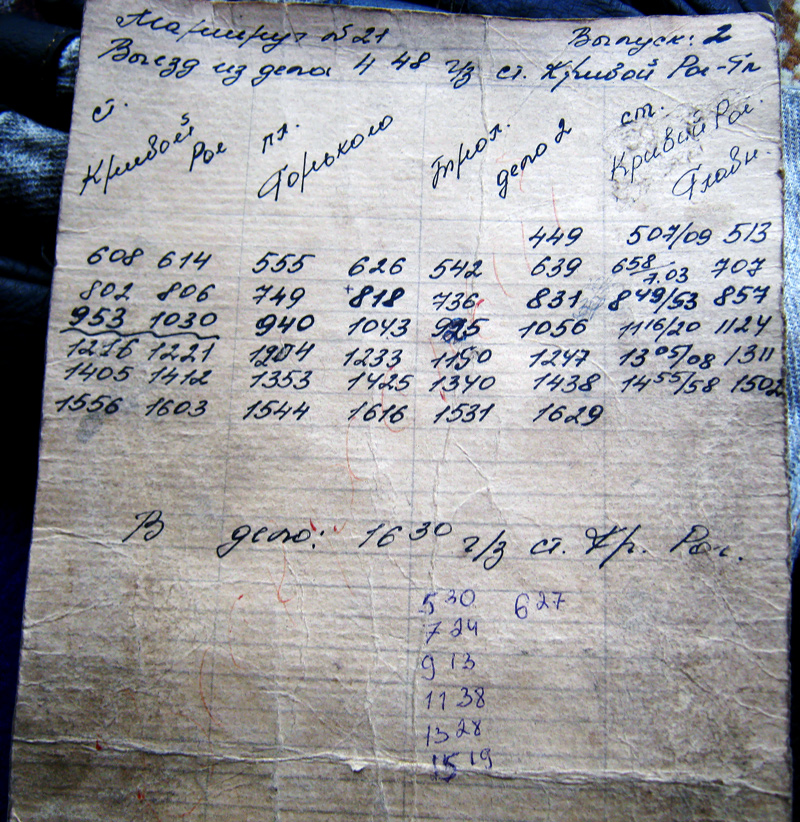 Маршрут №21 Выпуск: 2
Выезд из депо 4 48 ч/з ст. Кривой Рог-Гл
ст. Кривой Рог пл. Горького Трол. депо 2 ст. Кривий Рог. Главн.
449 507/09 513
608 614 555 626 542 639 658/7.03 707
802 806 749 818 736 831 849/53 857
953 1030 940 1043 925 1056 1116/20 1124
1216 1221 1204 1233 1150 1247 1305/08 1311
1405 1412 1353 1425 1340 1438 1455/58 1502
1556 1603 1544 1616 1531 1629
В депо: 16 30 ч/з ст. Кр. Рог.
5 30 6 27
7 24
9 13
11 38
13 28
15 19